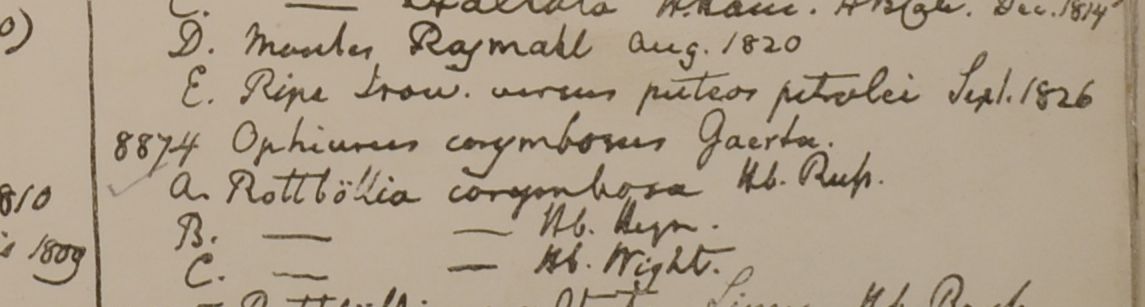 C. — H. Ham. H.B. Cal. Dec. 1814
0)
D. Montes Rajmahl Aug. 1820
E. Ripa Irow. versus puteos petrolei Sept. 1826
8874 Ophiurus corymbosus Gaertn.
1810
a. Rottböllia corymbosa Hb. Russ.
B. — — Hb. Heyn.
1809
C. — — Hb. Wight.
Hb.